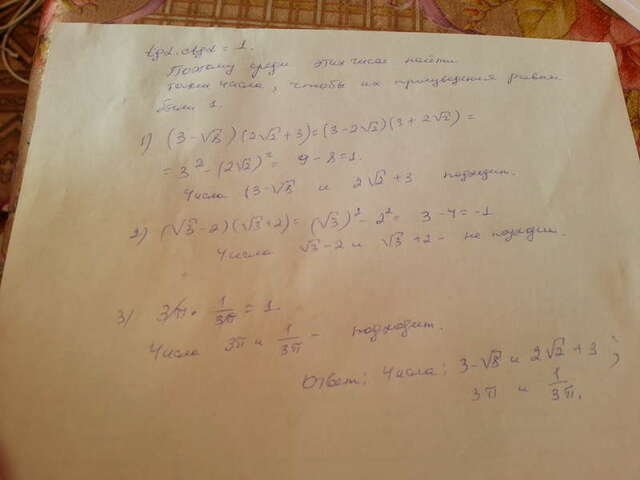 tgα·ctgα = 1.
Поэтому среди этих чисел найти
такие числа, чтобы их произведения равны
были 1.
1) (3-√8)(2√2+3)=(3-2√2)(3+2√2)=
= 3² - (2√2)² = 9 - 8 = 1.
Числа (3-√8 и 2√2+3 подходит.
2) (√3-2)(√3+2) = (√3)² - 2² = 3 - 4 = -1
Числа √3-2 и √3+2 - не подходит.
3) 3π · 1/3π = 1.
Числа 3π и 1/3π - подходит.
Ответ: Числа: 3-√8 и 2√2+3;
3π и 1/3π.